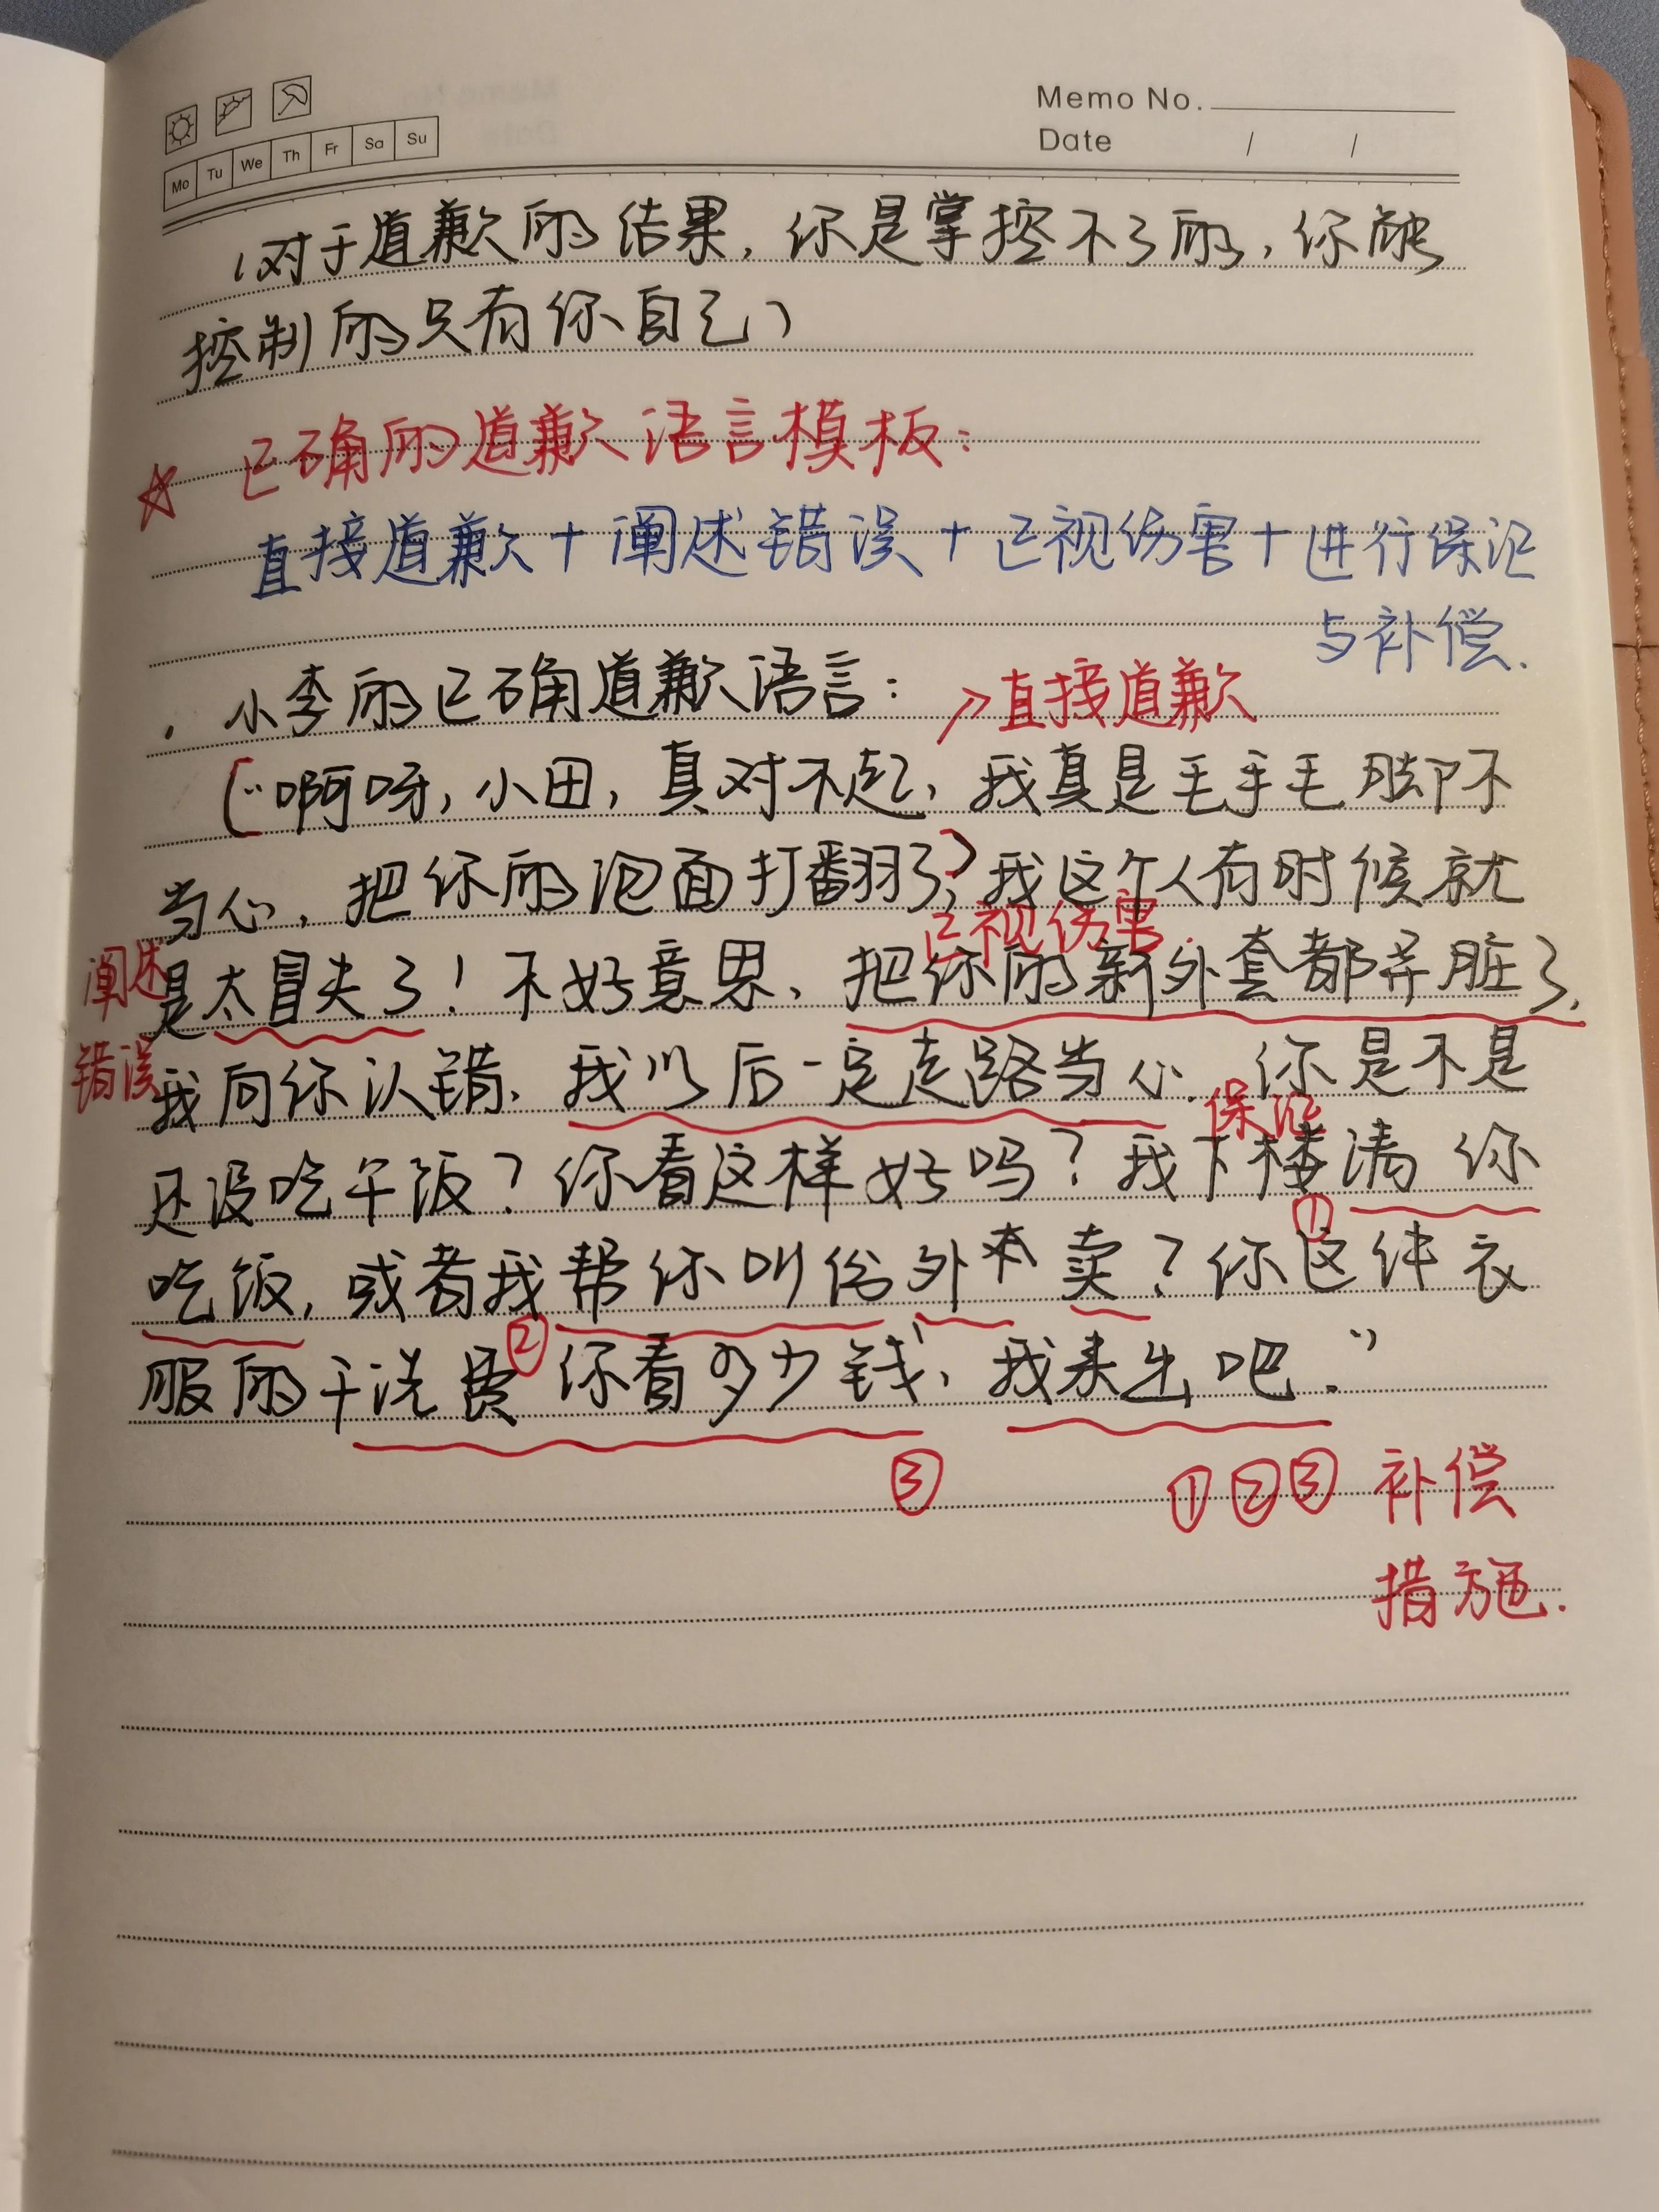 Memo No.
Mo Tu We Th Fr Sa Su
Date / /
（对于道歉的结果，你是掌控不了的，你能
控制的只有你自己）
☆ 正确的道歉语言模板：
直接道歉＋阐述错误＋正视伤害＋进行保证
与补偿.
. 小李的正确道歉语言：
↗直接道歉
[“啊呀，小田，真对不起，我真是毛手毛脚不
当心，把你的泡面打翻了] ，我这个人有时候就
正视伤害.
阐述
是太冒失了！不好意思，把你的新外套都弄脏了，
错误
我向你认错，我以后一定走路当心. 你是不是
保证
还没吃午饭？你看这样好吗？我下楼请你
①
吃饭，或者我帮你叫份外卖？你这件衣
②
服的干洗费你看多少钱，我来出吧.”
③
①②③ 补偿
措施.